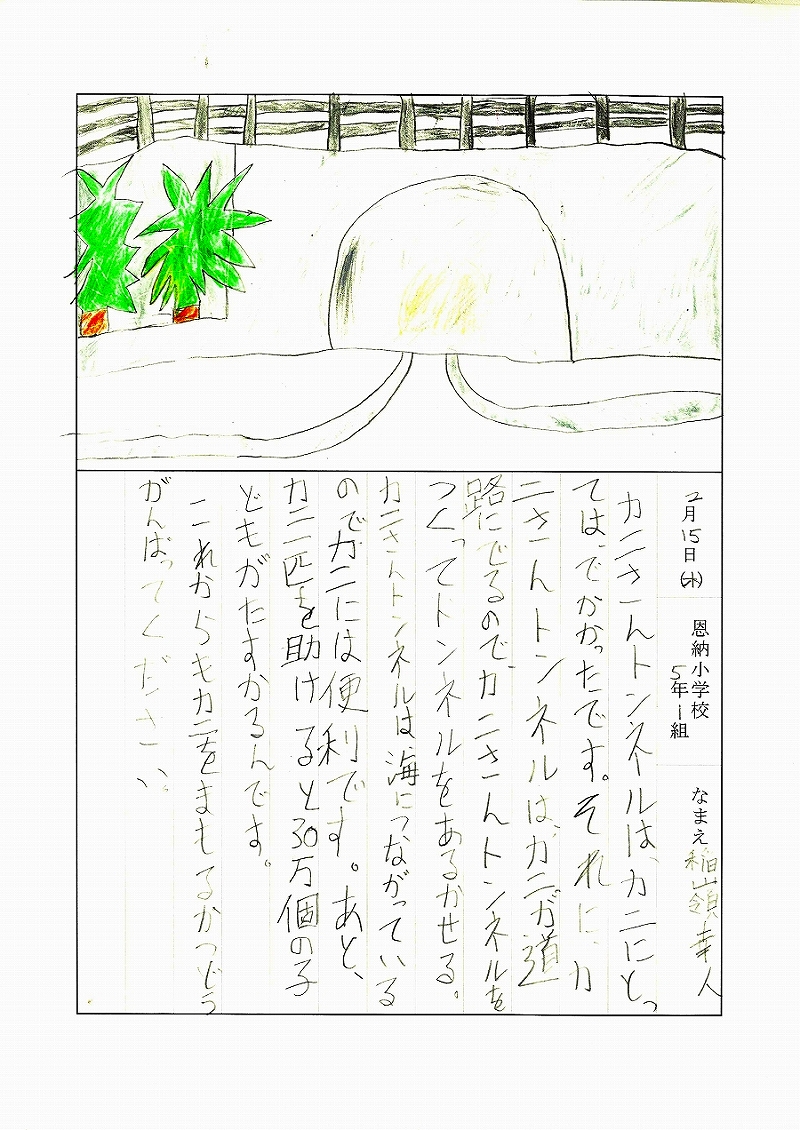 2月15日(水) 恩納小学校 5年1組 なまえ 稲嶺幸人
カニさんトンネルは、カニにとっ
ては、でかかったです。それに、カ
ニさんトンネルは、カニが道
路にでるので、カニさんトンネルを
つくってトンネルをあるかせる。
カニさんトンネルは海につながっている
のでカニには便利です。あと、
カニ一匹を助けると30万個の子
どもがたすかるんです。
これからもカニをまもるかつどう
がんばってください。